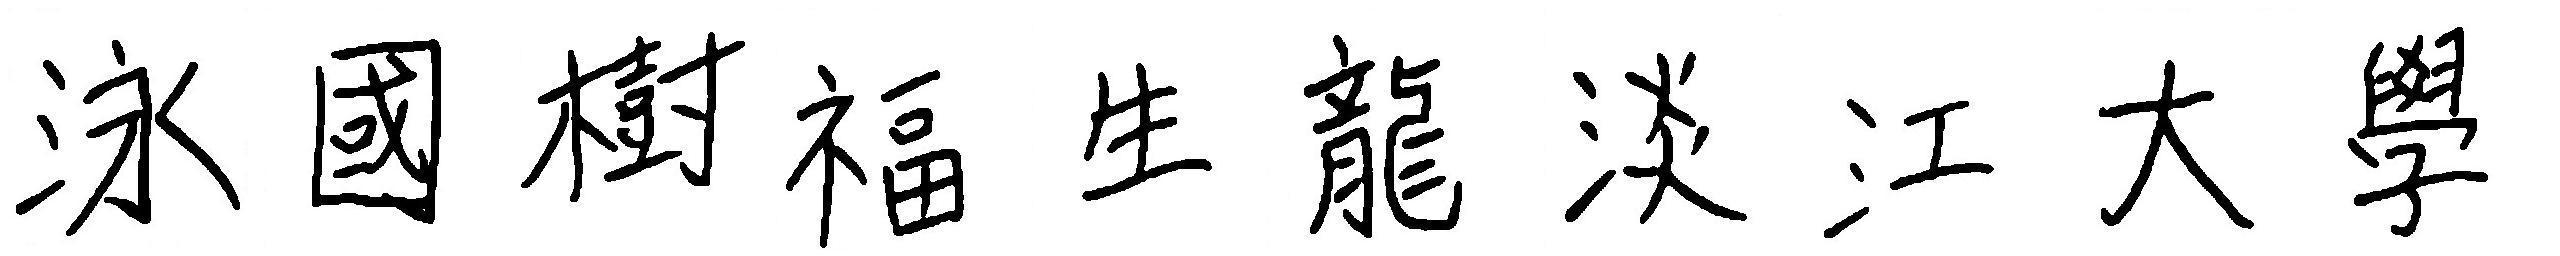 泳國樹福生龍淡江大學